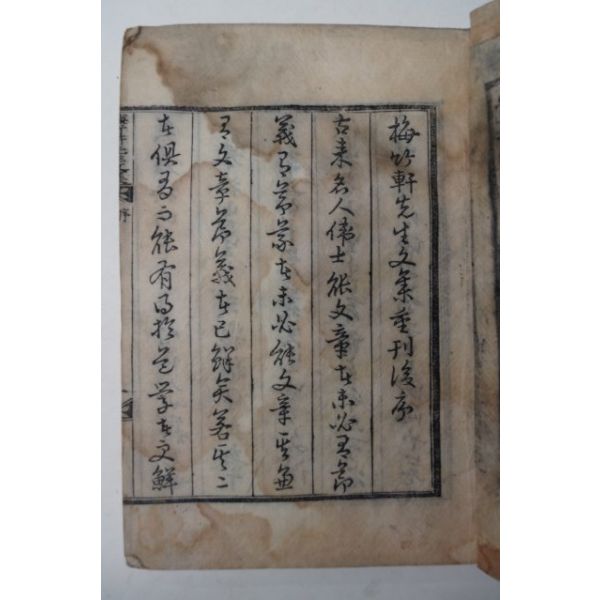 梅竹軒先生文集重刊後序
古來名人偉士能文章者未必有節
義有節義者未必能文章其兼
有文章節義者已鮮矣若其二
者俱有而能有得於道學者更鮮
序